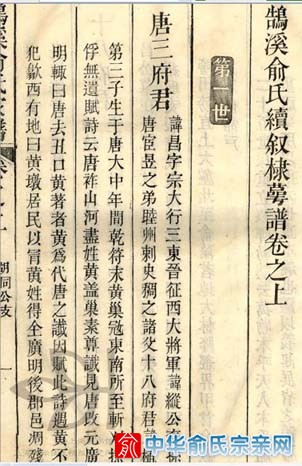 鵠溪俞氏續叙棣萼譜卷之上
第一世
唐三府君
諱昌字宗大行三東晉征西大將軍諱縱公
唐宦昱之弟睦州刺史稠之諸父十八府君
第三子生于唐大中年間乾符末黃巢冦東南所至斬
俘無遺賦詩云唐祚山河盡姓黃盖巢素尊讖見唐改元廣
明輙曰唐去丑口黃著者黃為代唐之讖因賦此詩遇黃不
犯歙西有地曰黃墩居民以冐黃姓得全廣明後郡邑凋殘
胡同公支
中华俞氏宗亲网